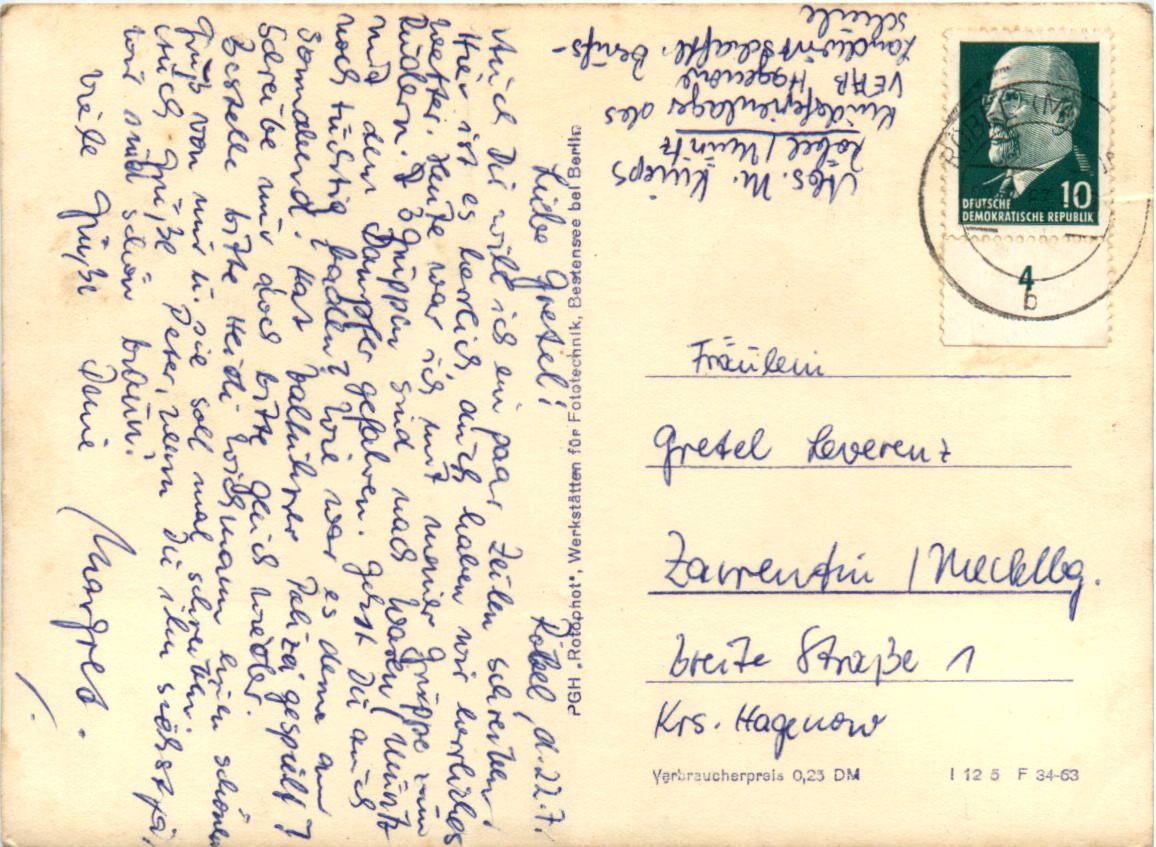 Röbel, d. 22.7.
Liebe Gretel!
Auch Dir will ich ein paar Zeilen schreiben.
Hier ist es herrlich, auch haben wir herrliches
Wetter. Heute war ich mit meiner Gruppe zum
Rudern. 3 Gruppen sind nach Waren/Müritz
mit dem Dampfer gefahren. Gehst Du auch
noch tüchtig baden? Wie war es denn am
Sonnabend? Hat Ballhitzer Polizei gespielt?
Schreibe mir doch bitte gleich wieder.
Bestelle bitte Heidi Wichmann einen schönen
Gruß von mir u. sie soll mal schreiben.
Auch Grüße Peter, wenn Du ihn siehst, ja,
wir sind schön braun.
Viele Grüße Deine
Margret.
PGH „Rotophot", Werkstätten für Fototechnik, Bestensee bei Berlin
Abs. M. Knieps
Röbel/Müritz
Kinderferienlager des
VEAB Hagenow
Landwirtschaftl. Berufs-
schule
DEUTSCHE
DEMOKRATISCHE REPUBLIK
10
4
b
Fräulein
Gretel Leverenz
Zarrentin / Mecklbg.
Breite Straße 1
Krs. Hagenow
Verbraucherpreis 0,25 DM
I 12 5 F 34-63